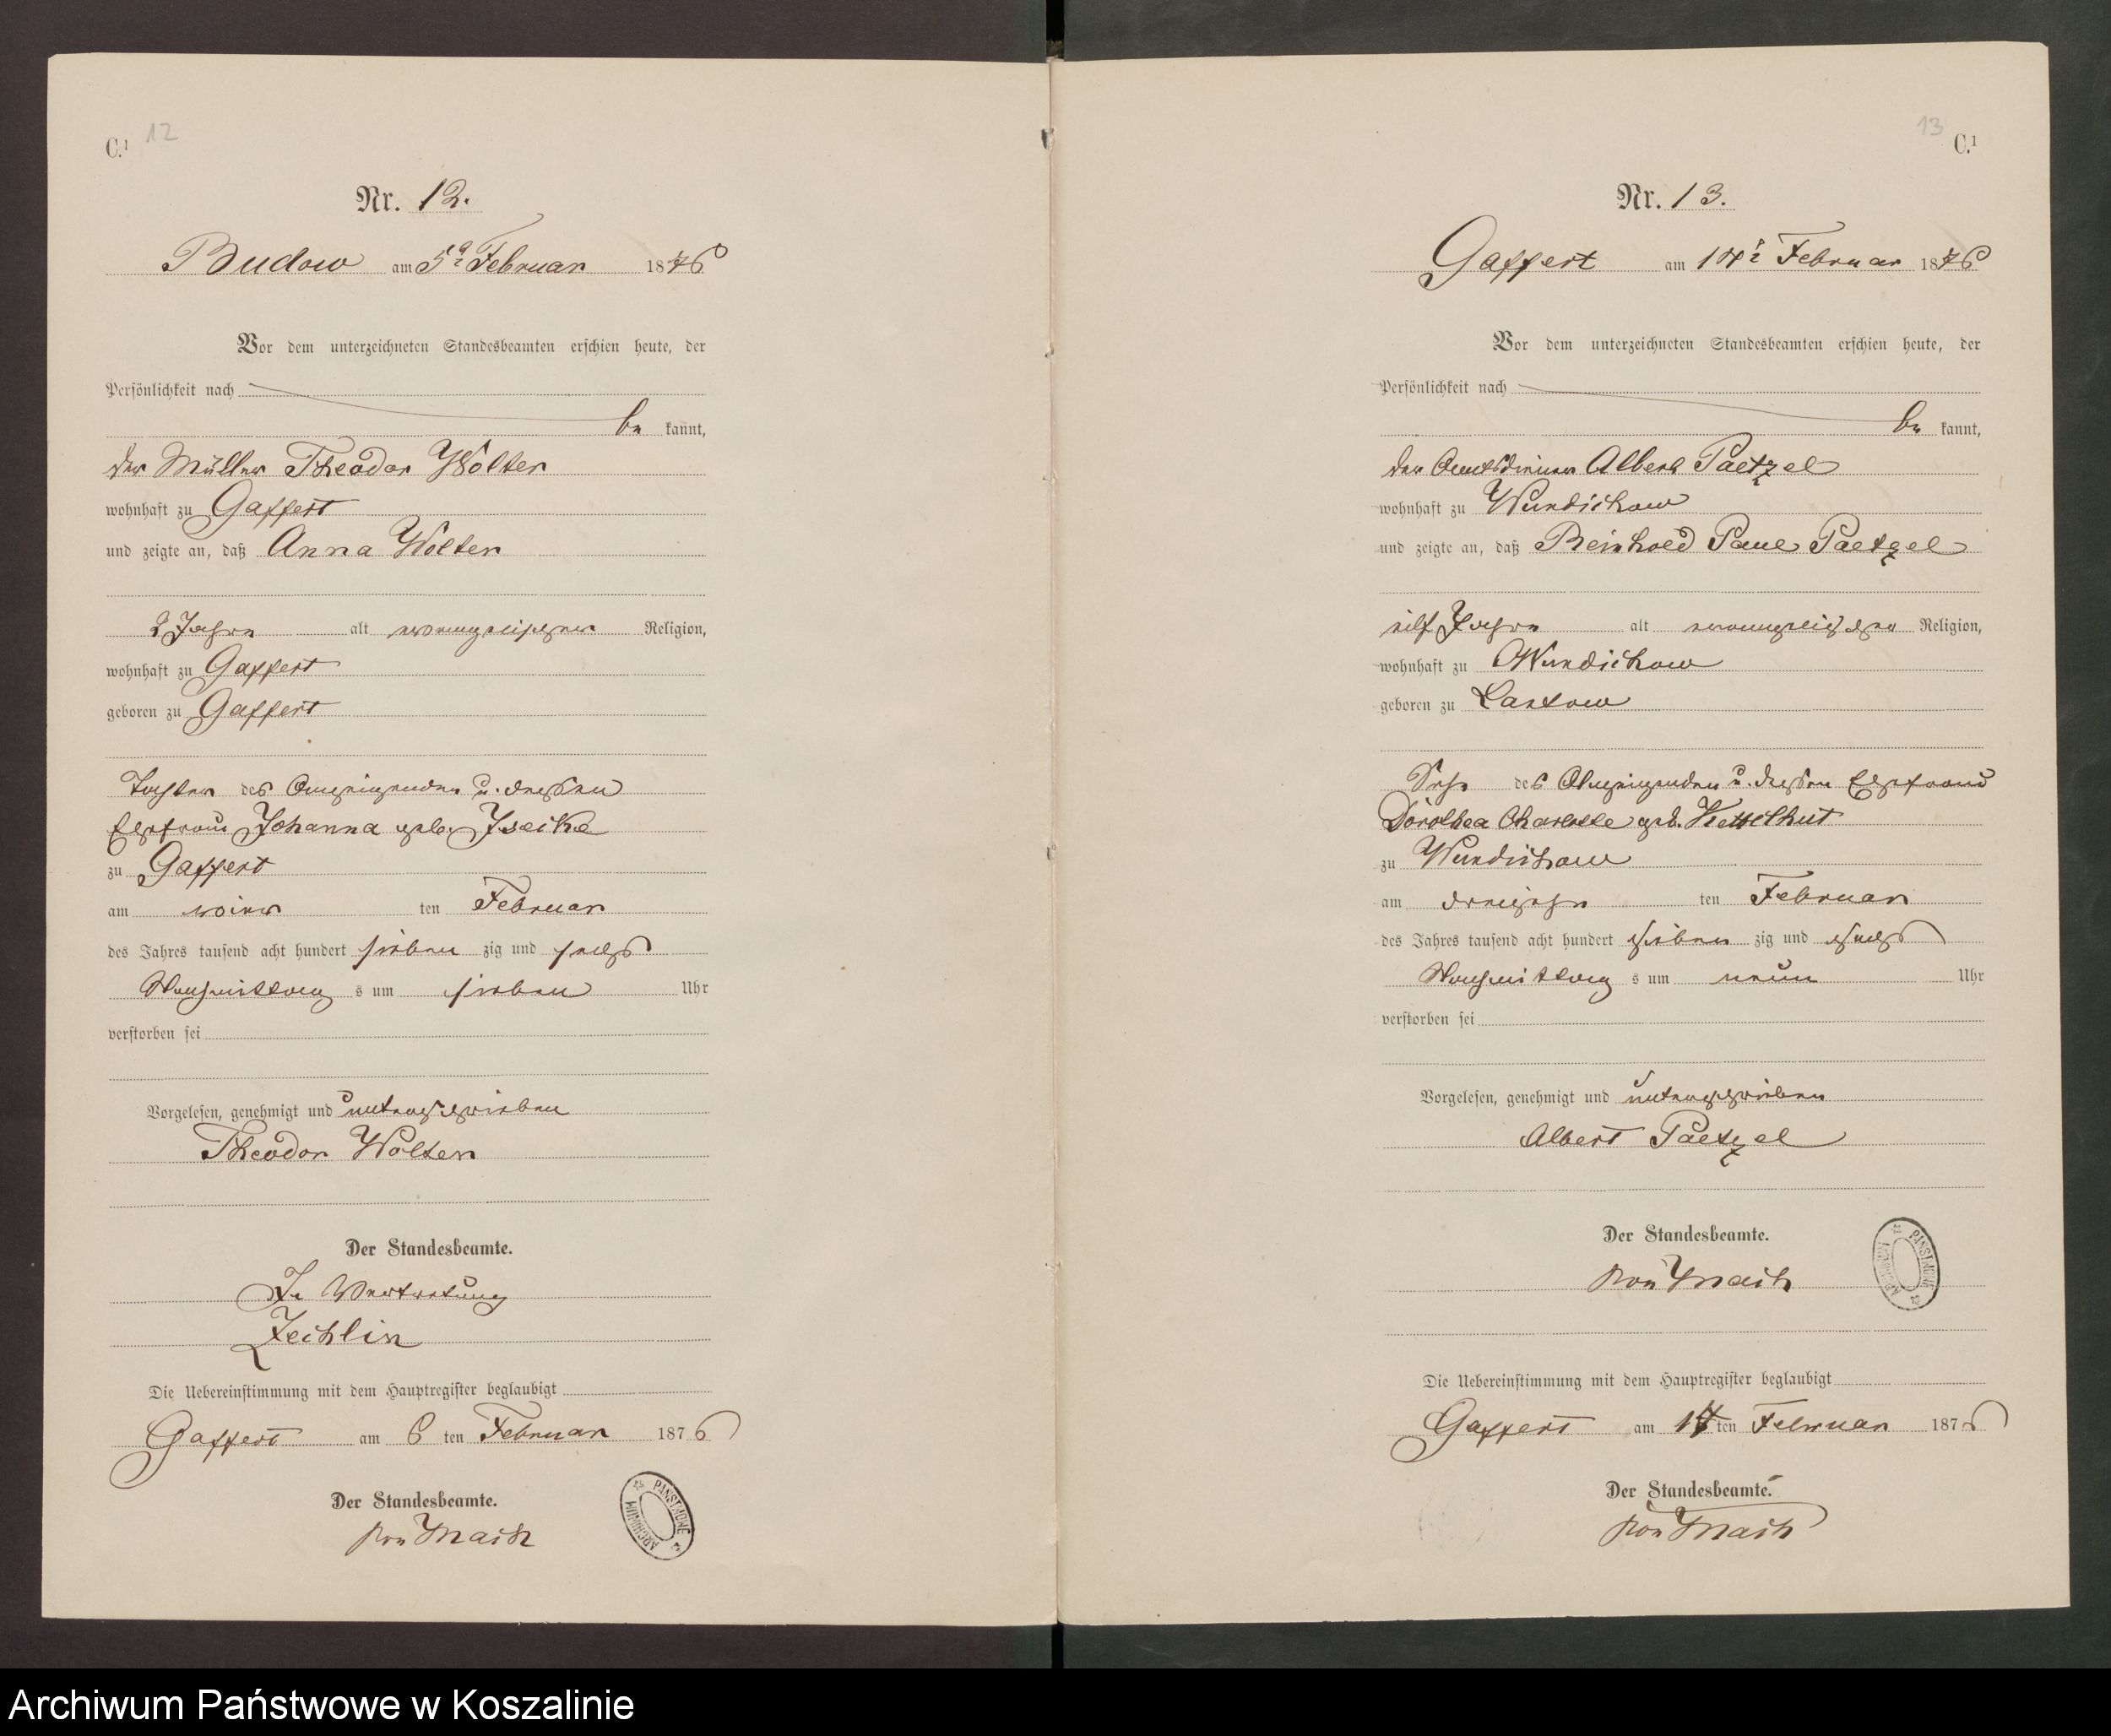 C.¹ 12
Nr. 12.
Budow am 5ᵗ Februar 1876
Vor dem unterzeichneten Standesbeamten erschien heute, der
Persönlichkeit nach
be kannt,
der Müller Theodor Wolter
wohnhaft zu Gaffert
und zeigte an, daß Anna Wolter
2 Jahre alt evangelischer Religion,
wohnhaft zu Gaffert
geboren zu Gaffert
Tochter des Anzeigenden u. dessen
Ehefrau Johanna geb. Iseike
zu Gaffert
am vier ten Februar
des Jahres tausend acht hundert sieben zig und sechs
Nachmittag s um sieben Uhr
verstorben sei
Vorgelesen, genehmigt und unterschrieben
Theodor Wolter
Der Standesbeamte.
In Vertretung
Zechlin
Die Uebereinstimmung mit dem Hauptregister beglaubigt
Gaffert am 6 ten Februar 1876
Der Standesbeamte.
von Mach
ARCHIWUM PAŃSTWOWE
13 C.¹
Nr. 13.
Gaffert am 14ᵗ Februar 1876
Vor dem unterzeichneten Standesbeamten erschien heute, der
Persönlichkeit nach
be kannt,
der Amtsdiener Albert Paetzel
wohnhaft zu Wundichow
und zeigte an, daß Reinhold Paul Paetzel
eilf Jahre alt evangelischer Religion,
wohnhaft zu Wundichow
geboren zu Lantow
Sohn des Anzeigenden u. dessen Ehefrau
Dorothea Charlotte geb. Kettelhut
zu Wundichow
am dreizehn ten Februar
des Jahres tausend acht hundert sieben zig und sechs
Nachmittag s um neun Uhr
verstorben sei
Vorgelesen, genehmigt und unterschrieben
Albert Paetzel
Der Standesbeamte.
von Mach
ARCHIWUM PAŃSTWOWE
Die Uebereinstimmung mit dem Hauptregister beglaubigt
Gaffert am 14 ten Februar 1876
Der Standesbeamte.
von Mach
Archiwum Państwowe w Koszalinie